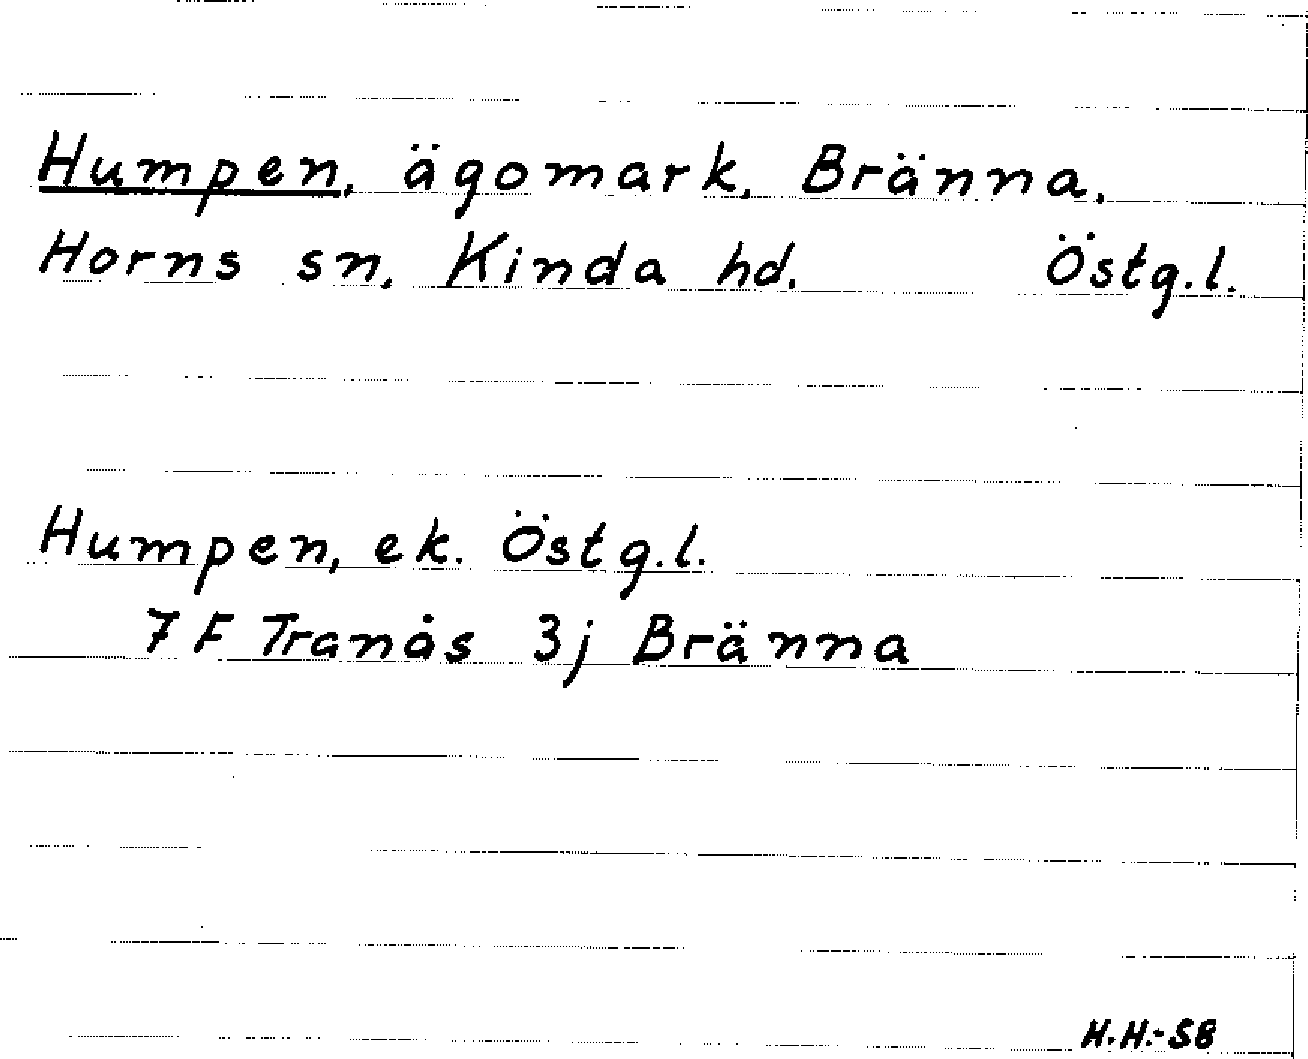 Humpen, ägomark, Bränna,
Horns sn, Kinda hd. Östg.l.
Humpen, ek. Östg.l.
7 F Tranås 3j Bränna
H.H:-58